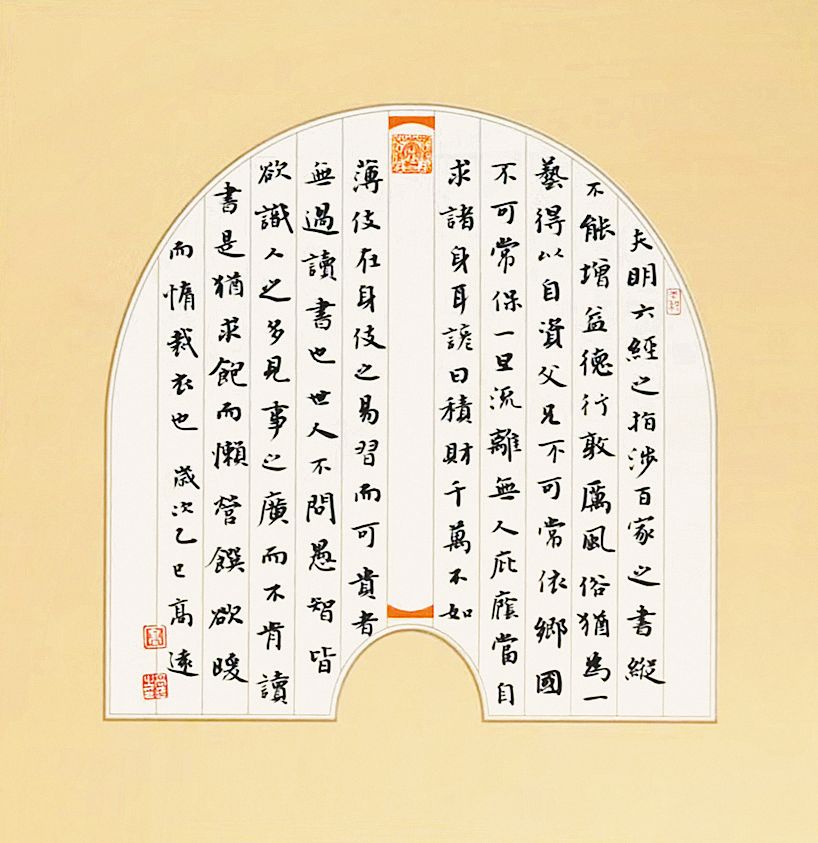 夫明六經之指涉百家之書縱
不能增益德行敦厲風俗猶為一
藝得以自資父兄不可常依鄉國
不可常保一旦流離無人庇廕當自
求諸身耳諺曰積財千萬不如
薄伎在身伎之易習而可貴者
無過讀書也世人不問愚智皆
欲識人之多見事之廣而不肯讀
書是猶求飽而懶營饌欲暖
而惰裁衣也 歲次乙巳高遠